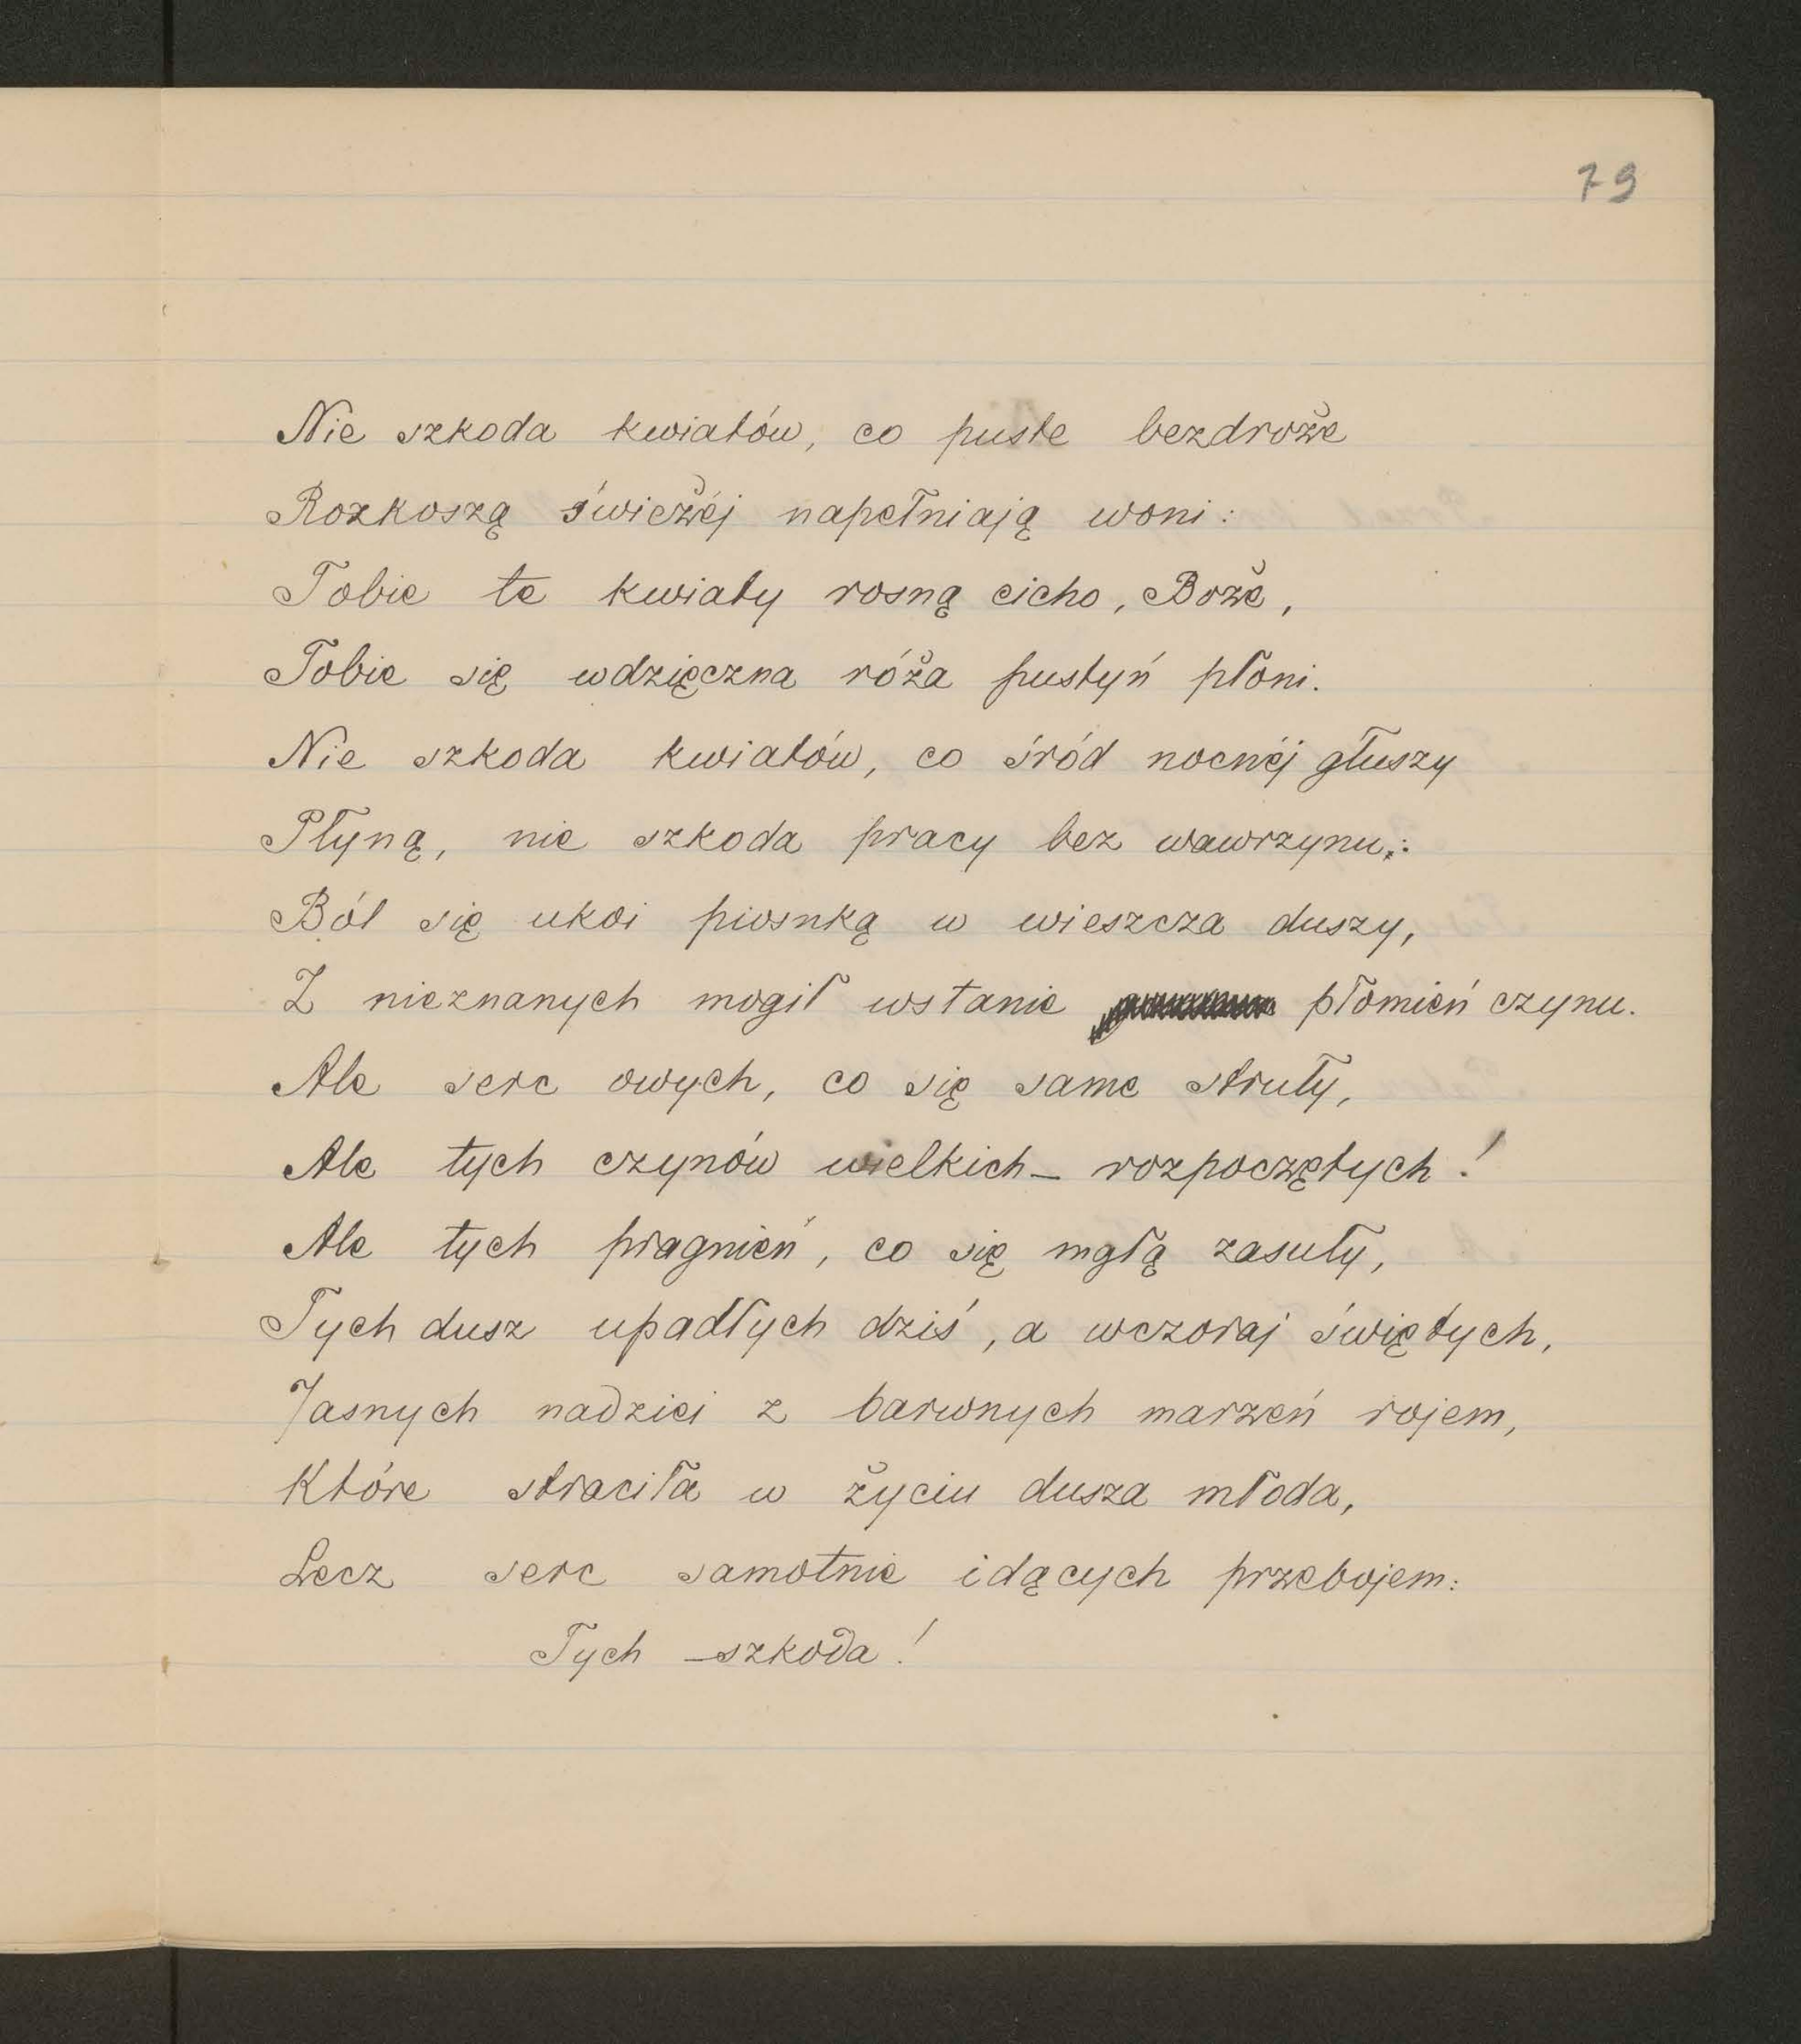 79
Nie szkoda kwiatów, co puste bezdroże
Rozkoszą świeżéj napełniają woni:
Tobie te kwiaty rosną cicho, Boże,
Tobie się wdzięczna róża pustyń płoni.
Nie szkoda kwiatów, co śród nocnéj głuszy
Płyną, nie szkoda pracy bez wawrzynu:
Ból się ukoi piosnką w wieszcza duszy,
Z nieznanych mogił wstanie płomień czynu.
Ale serc owych, co się same struły,
Ale tych czynów wielkich – rozpoczętych!
Ale tych pragnień, co się mgłą zasuły,
Tych dusz upadłych dziś, a wczoraj świętych,
Jasnych nadziei z barwnych marzeń rojem,
Które straciła w życiu dusza młoda,
Lecz serc samotnie idących przebojem:
Tych – szkoda!